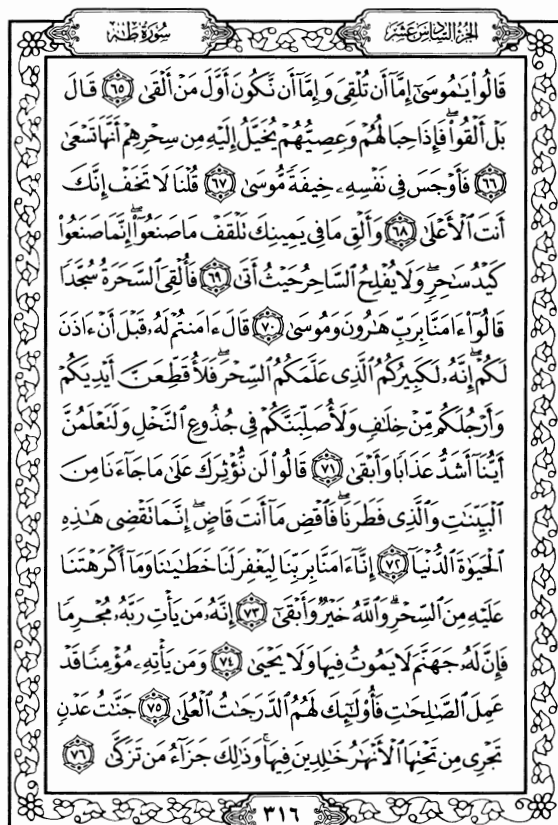 سُورَةُ طه
الجُزْءُ السَّادِسَ عَشَرَ
قَالُواْ يَٰمُوسَىٰٓ إِمَّآ أَن تُلْقِيَ وَإِمَّآ أَن نَّكُونَ أَوَّلَ مَنْ أَلْقَىٰ ٦٥ قَالَ
بَلْ أَلْقُواْۖ فَإِذَا حِبَالُهُمْ وَعِصِيُّهُمْ يُخَيَّلُ إِلَيْهِ مِن سِحْرِهِمْ أَنَّهَا تَسْعَىٰ
٦٦ فَأَوْجَسَ فِي نَفْسِهِۦ خِيفَةً مُّوسَىٰ ٦٧ قُلْنَا لَا تَخَفْ إِنَّكَ
أَنتَ ٱلْأَعْلَىٰ ٦٨ وَأَلْقِ مَا فِي يَمِينِكَ تَلْقَفْ مَا صَنَعُوٓاْۖ إِنَّمَا صَنَعُواْ
كَيْدُ سَٰحِرٍۖ وَلَا يُفْلِحُ ٱلسَّاحِرُ حَيْثُ أَتَىٰ ٦٩ فَأُلْقِيَ ٱلسَّحَرَةُ سُجَّدًا
قَالُوٓاْ ءَامَنَّا بِرَبِّ هَٰرُونَ وَمُوسَىٰ ٧٠ قَالَ ءَامَنتُمْ لَهُۥ قَبْلَ أَنْ ءَاذَنَ
لَكُمْۖ إِنَّهُۥ لَكَبِيرُكُمُ ٱلَّذِي عَلَّمَكُمُ ٱلسِّحْرَۖ فَلَأُقَطِّعَنَّ أَيْدِيَكُمْ
وَأَرْجُلَكُم مِّنْ خِلَٰفٍ وَلَأُصَلِّبَنَّكُمْ فِي جُذُوعِ ٱلنَّخْلِ وَلَتَعْلَمُنَّ
أَيُّنَآ أَشَدُّ عَذَابًا وَأَبْقَىٰ ٧١ قَالُواْ لَن نُّؤْثِرَكَ عَلَىٰ مَا جَآءَنَا مِنَ
ٱلْبَيِّنَٰتِ وَٱلَّذِي فَطَرَنَاۖ فَٱقْضِ مَآ أَنتَ قَاضٍۖ إِنَّمَا تَقْضِي هَٰذِهِ
ٱلْحَيَوٰةَ ٱلدُّنْيَآ ٧٢ إِنَّآ ءَامَنَّا بِرَبِّنَا لِيَغْفِرَ لَنَا خَطَٰيَٰنَا وَمَآ أَكْرَهْتَنَا
عَلَيْهِ مِنَ ٱلسِّحْرِۗ وَٱللَّهُ خَيْرٌ وَأَبْقَىٰٓ ٧٣ إِنَّهُۥ مَن يَأْتِ رَبَّهُۥ مُجْرِمًا
فَإِنَّ لَهُۥ جَهَنَّمَ لَا يَمُوتُ فِيهَا وَلَا يَحْيَىٰ ٧٤ وَمَن يَأْتِهِۦ مُؤْمِنًا قَدْ
عَمِلَ ٱلصَّٰلِحَٰتِ فَأُوْلَٰٓئِكَ لَهُمُ ٱلدَّرَجَٰتُ ٱلْعُلَىٰ ٧٥ جَنَّٰتُ عَدْنٍ
تَجْرِي مِن تَحْتِهَا ٱلْأَنْهَٰرُ خَٰلِدِينَ فِيهَاۚ وَذَٰلِكَ جَزَآءُ مَن تَزَكَّىٰ ٧٦
٣١٦